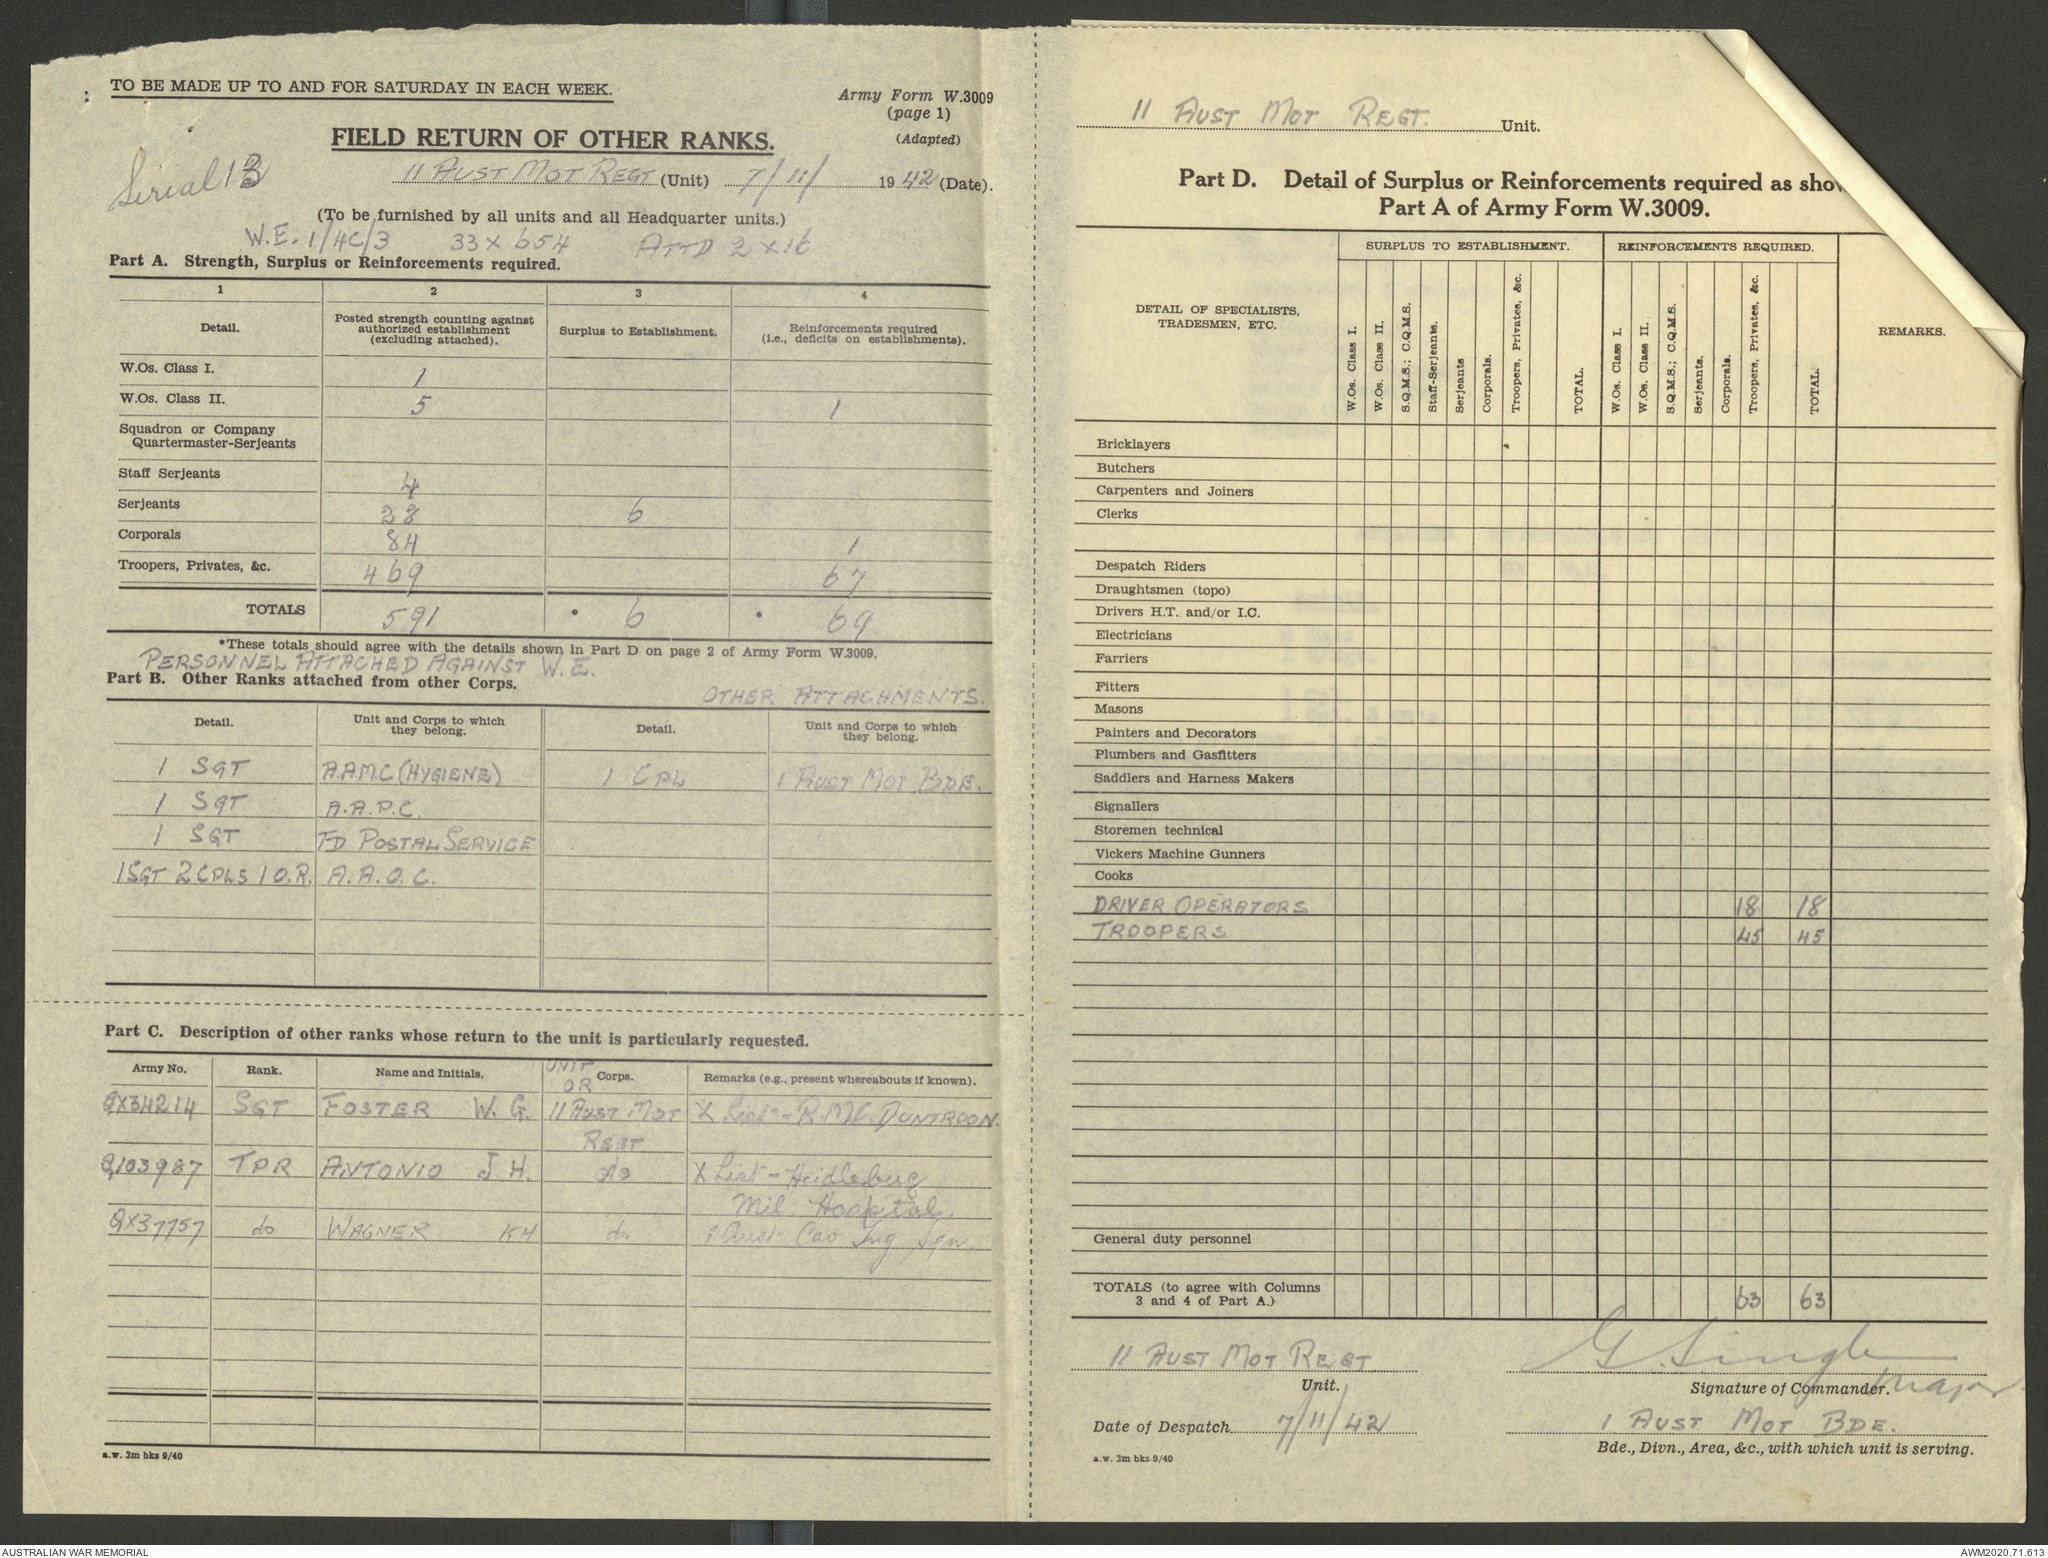 TO BE MADE UP TO AND FOR SATURDAY IN EACH WEEK.
Army Form W.3009
(page 1)
(Adapted)
FIELD RETURN OF OTHER RANKS.
Serial 13
11 AUST MOT REGT (Unit) 7/11/ 1942 (Date).
(To be furnished by all units and all Headquarter units.)
W.E. 1/4C/3 33 x 654 ATTD 2 x 16
Part A. Strength, Surplus or Reinforcements required.
1 2 3 4
Detail. Posted strength counting against authorized establishment (excluding attached). Surplus to Establishment. Reinforcements required (i.e., deficits on establishments).
W.Os. Class I. 1
W.Os. Class II. 5 1
Squadron or Company
Quartermaster-Serjeants
Staff Serjeants 4
Serjeants 28 6
Corporals 84 1
Troopers, Privates, &c. 469 67
TOTALS 591 • 6 • 69
*These totals should agree with the details shown in Part D on page 2 of Army Form W.3009.
PERSONNEL ATTACHED AGAINST W.E.
Part B. Other Ranks attached from other Corps.
OTHER ATTACHMENTS.
Detail. Unit and Corps to which they belong. Detail. Unit and Corps to which they belong.
1 SGT A.A.M.C (HYGIENE) 1 CPL 1 AUST MOT BDE.
1 SGT A.A.P.C.
1 SGT FD POSTAL SERVICE
1 SGT 2 CPLS 1 O.R. A.A.O.C.
Part C. Description of other ranks whose return to the unit is particularly requested.
Army No. Rank. Name and Initials. UNIT OR Corps. Remarks (e.g., present whereabouts if known).
QX34214 SGT FOSTER W.G. 11 AUST MOT X List - R.M.C. DUNTROON.
REGT
Q103987 TPR ANTONIO J.H. do X List - Heidleburg
Mil Hospital.
QX37757 do WAGNER KH do 1 Aust Cav Trg Sqn.
a.w. 3m bks 9/40
11 AUST MOT REGT. Unit.
Part D. Detail of Surplus or Reinforcements required as show
Part A of Army Form W.3009.
DETAIL OF SPECIALISTS, TRADESMEN, ETC.
SURPLUS TO ESTABLISHMENT.
REINFORCEMENTS REQUIRED.
REMARKS.
W.Os. Class I.
W.Os. Class II.
S.Q.M.S.; C.Q.M.S.
Staff-Serjeants.
Serjeants
Corporals.
Troopers, Privates, &c.
TOTAL.
W.Os. Class I.
W.Os. Class II.
S.Q.M.S.; C.Q.M.S.
Serjeants.
Corporals.
Troopers, Privates, &c.
TOTAL.
Bricklayers
Butchers
Carpenters and Joiners
Clerks
Despatch Riders
Draughtsmen (topo)
Drivers H.T. and/or I.C.
Electricians
Farriers
Fitters
Masons
Painters and Decorators
Plumbers and Gasfitters
Saddlers and Harness Makers
Signallers
Storemen technical
Vickers Machine Gunners
Cooks
DRIVER OPERATORS 18 18
TROOPERS 45 45
General duty personnel
TOTALS (to agree with Columns
3 and 4 of Part A.) 63 63
11 AUST MOT REGT
Unit.
Major
Signature of Commander.
Date of Despatch 7/11/42
1 AUST MOT BDE.
Bde., Divn., Area, &c., with which unit is serving.
a.w. 3m bks 9/40
AUSTRALIAN WAR MEMORIAL
AWM2020.71.613